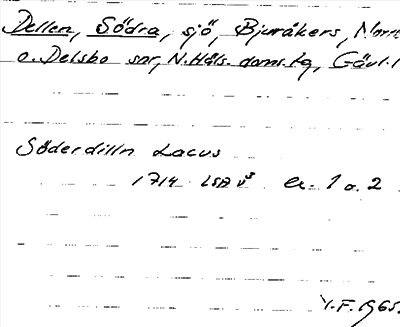 Dellen, Södra, sjö, Bjuråkers, Norr
o. Delsbo snr, N. Häls. doms. tg, Gävl. l
Söderdilln Lacus
1714 LSA ex. 1 o. 2
Y.F. 1965.